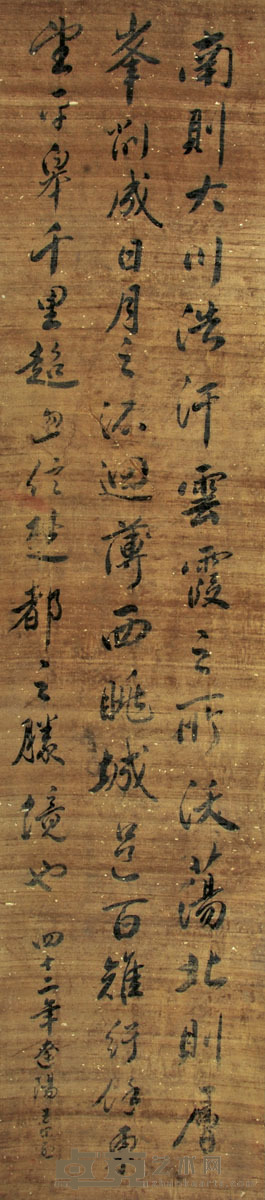 南則大川浩汗雲霞之所沃蕩北則層
峯削成日月之迴薄西眺城邑百雉紆餘東
望平皋千里超忽信楚都之勝境也
四十二年遼陽